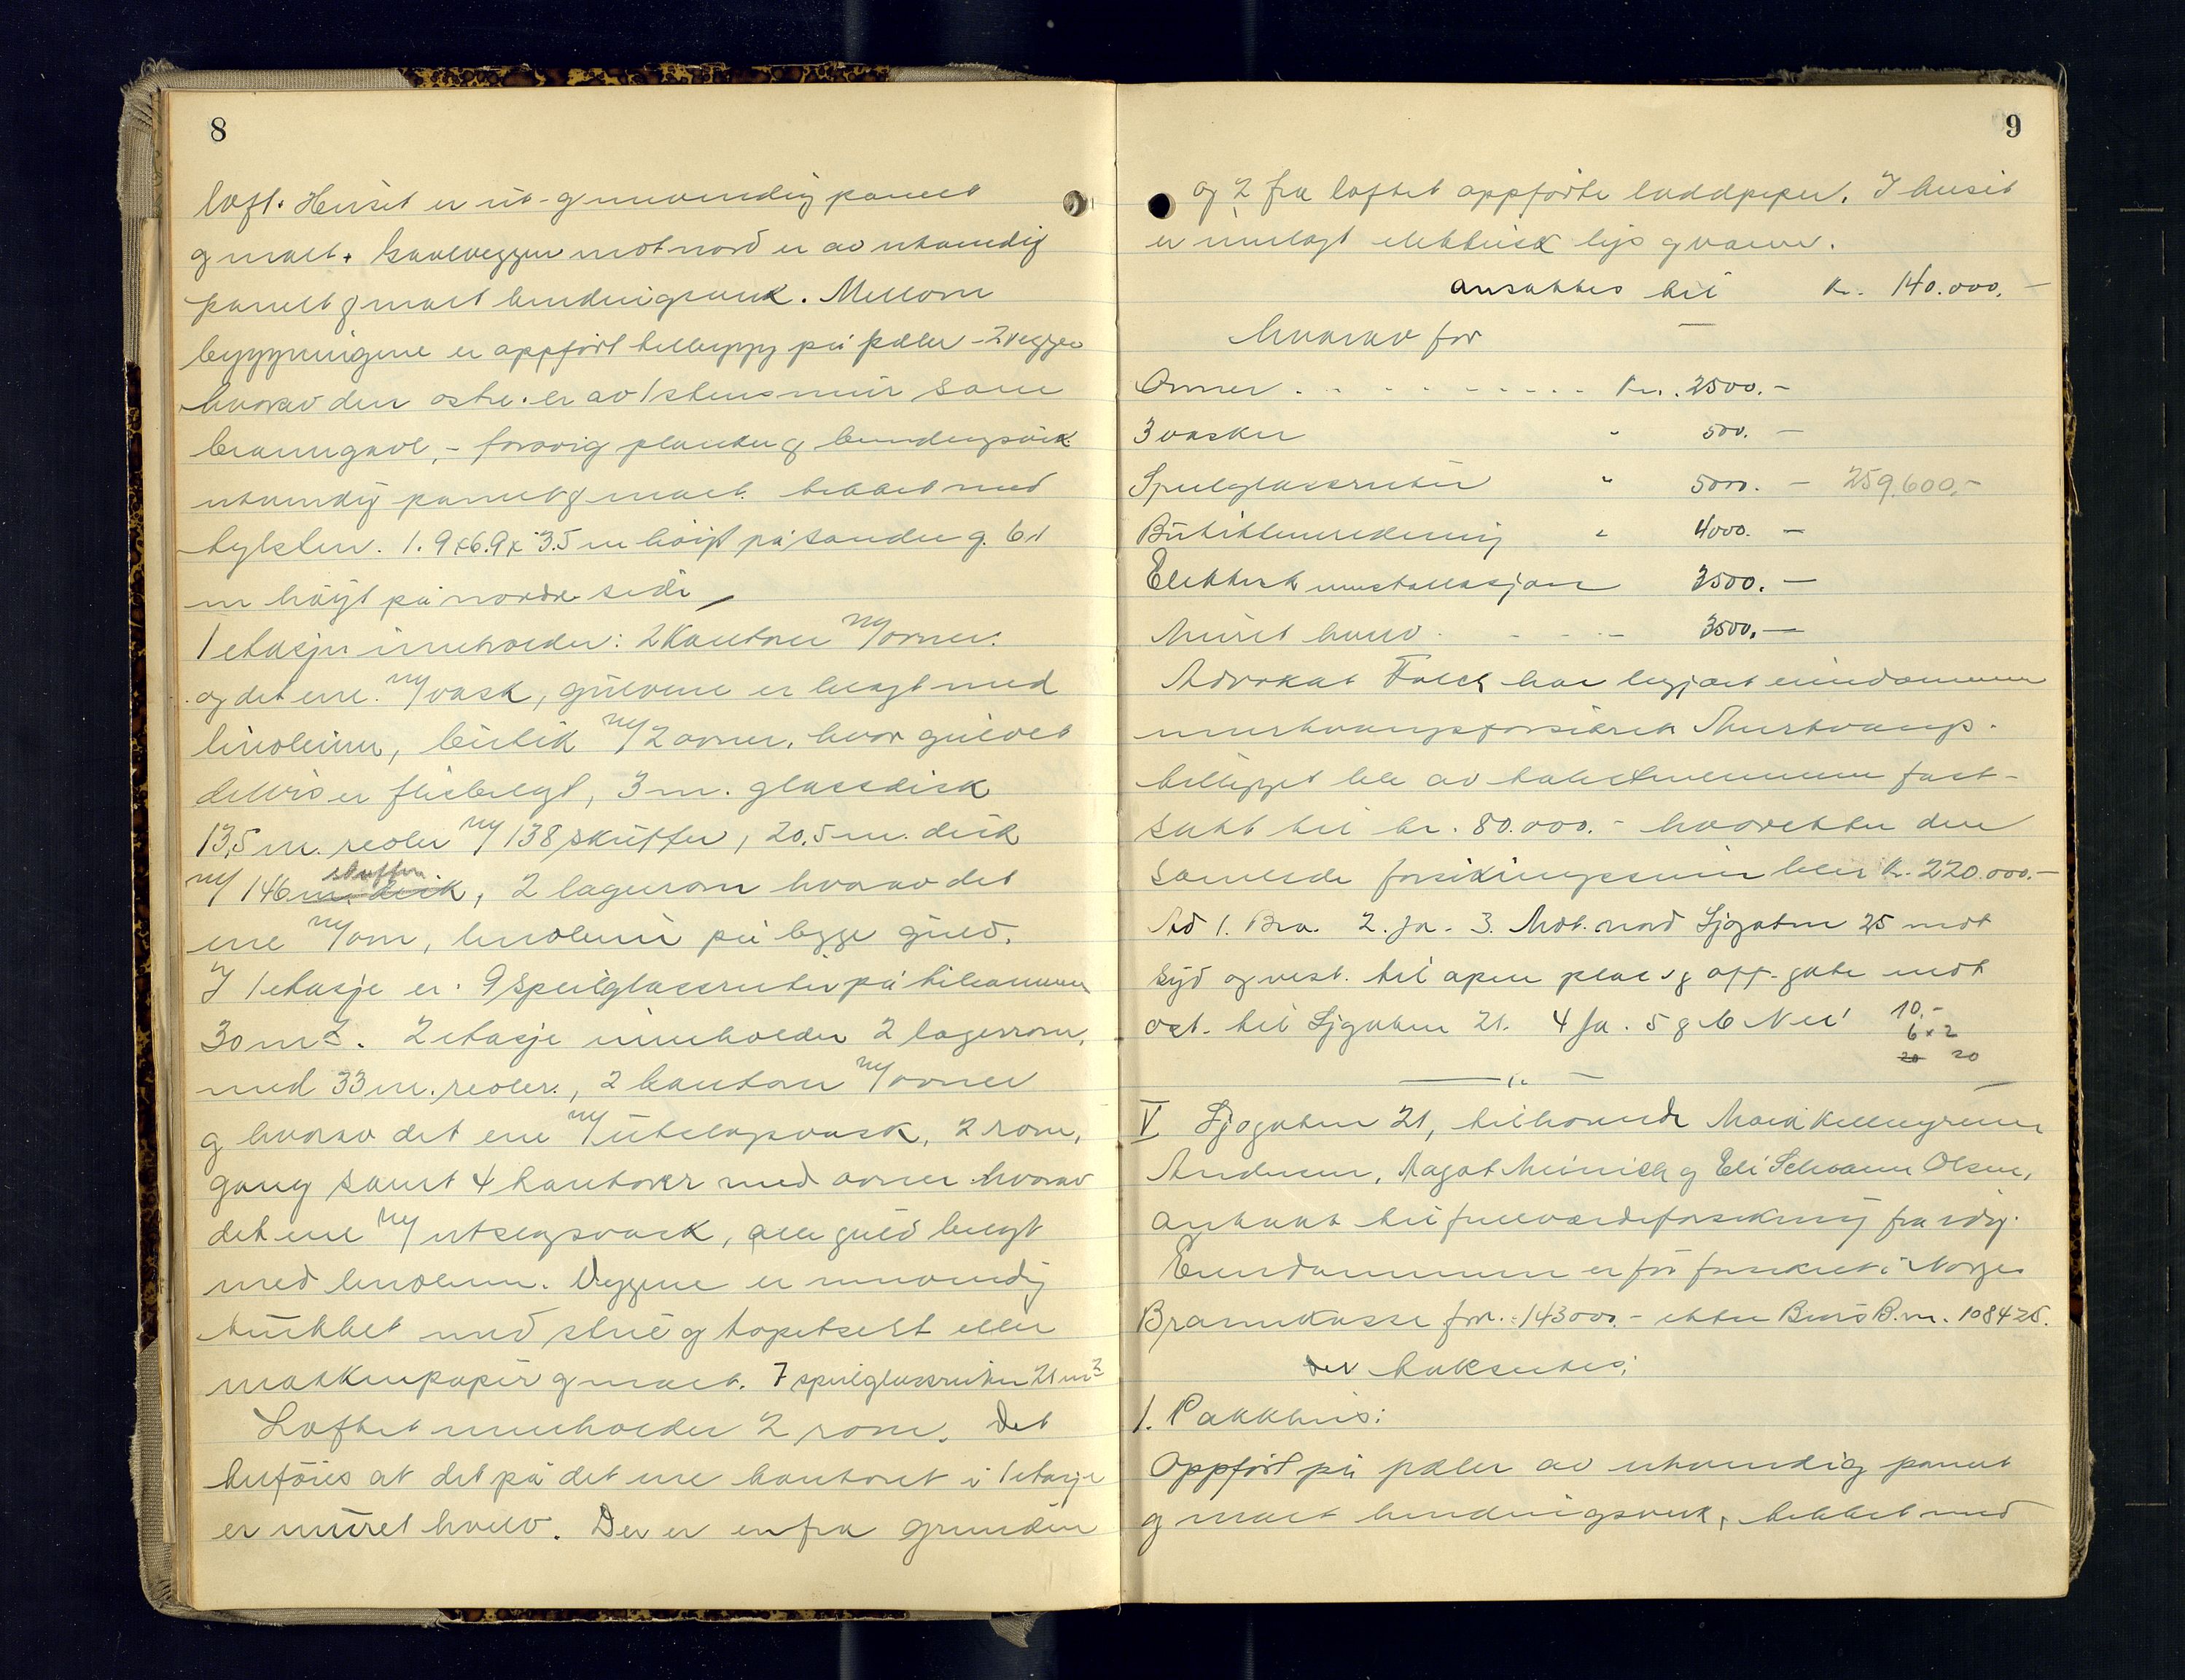 8
loft. Huset er ut- og innvendig panelt
og malt. Gavlveggen mot nord er av utvendig
panelt og malt bindingsverk. Mellom
bygningene er oppført tilbygg på pæler - 2 vegger
hvorav den østre er av 1 stens mur som
branngavl, - forøvrig planker og bindingsverk
utvendig panelt og malt tekket med
teglsten. 1. 9 x 6.9 x 3.5 m høigt på søndre og 6.1
m høigt på nordre side
1 etasje inneholder: 2 kontorer m/ovner.
og det ene m/vask, gulvene er belagt med
linoleum, butik m/2 ovner. hvor gulvet
delvis er flisbelagt, 3 m. glassdisk
13,5 m. reoler m/138 skuffer, 20,5 m. disk
m/146 skuffer, 2 lagerrom hvorav det
ene m/ovn, linoleum på begge gulv.
I 1 etasje er 9 speilglassruter på tilsammen
30 m2. 2 etasje inneholder 2 lagerrom,
med 33 m. reoler, 2 kontorer m/ovner
og hvorav det ene m/utslagsvask, 2 rom,
gang samt 4 kontorer med ovner hvorav
det ene m/utslagsvask, alle gulv belagt
med linoleum. Veggene er innvendig
trukket med strie og tapetsert eller
maskinpapir og malt. 7 speilglassruter 21 m2
Loftet inneholder 2 rom. Det
tilføies at det på det ene kontoret i 1 etasje
er muret hvelv. Der er en fra grunnen
9
og 2 fra loftet oppførte loddpiper. I huset
er innlagt elektrisk lys og varme.
ansettes til Kr. 140.000.-
hvorav for
Ovner Kr. 2500.-
3 vasker " 500.-
Speilglassruter " 5000.- 259.600.-
Butikkinnredning " 4000.-
Elektrisk installasjon 3500.-
Muret hvelv 3500.-
Advokat Falch har begjært eiendommen
murtvangsforsikret. Murtvangs-
tillegget ble av takstmennene fast-
satt til kr. 80.000.- hvoretter den
samlede forsikringssum blir Kr. 220.000.-
Ad 1. Bra. 2. Ja. 3. Mot nord Sjøgaten 25 mot
syd og vest. til åpen plass og off. gate mot
øst. til Sjøgaten 21. 4 Ja. 5 og 6 Nei
10,-
6 x 2
20 20
V Sjøgaten 21, tilhørende
Andersen, Magot Meinich og Eli Schwenn Olsen,
antatt til fullverdiforsikring fra idag.
Eiendommen er før forsikret i Norges
Brannkasse for: 143000.- etter Bevis B. nr. 108425.
Der takseres:
1. Pakkhus:
Oppført på pæler av utvendig panelt
og malt bindingsverk, tekket med